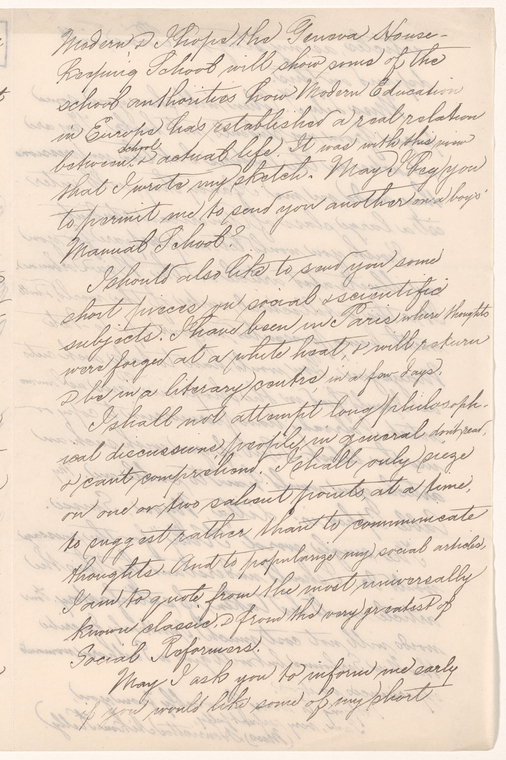 Modern, & I hope the Geneva House-
keeping School will show some of the
school authorities how Modern Education
in Europe has established a real relation
between school & actual life. It was with this view
that I wrote my sketch. May I beg you
to permit me to send you another on a boys'
Manual School?
I should also like to send you some
short pieces on social & scientific
subjects. I have been in Paris where thoughts
were forged at a white heat, & will return
& be in a literary centre in a few days.
I shall not attempt long philosoph-
ical discussions, people in general dont read,
& cant comprehend. I shall only siege
on one or two salient points at a time,
to suggest rather than to communicate
thoughts. And to popularize my social articles,
I aim to quote from the most universally
known classic, & from the very greatest of
Social Reformers.
May I ask you to inform me early
if you would like some of my short